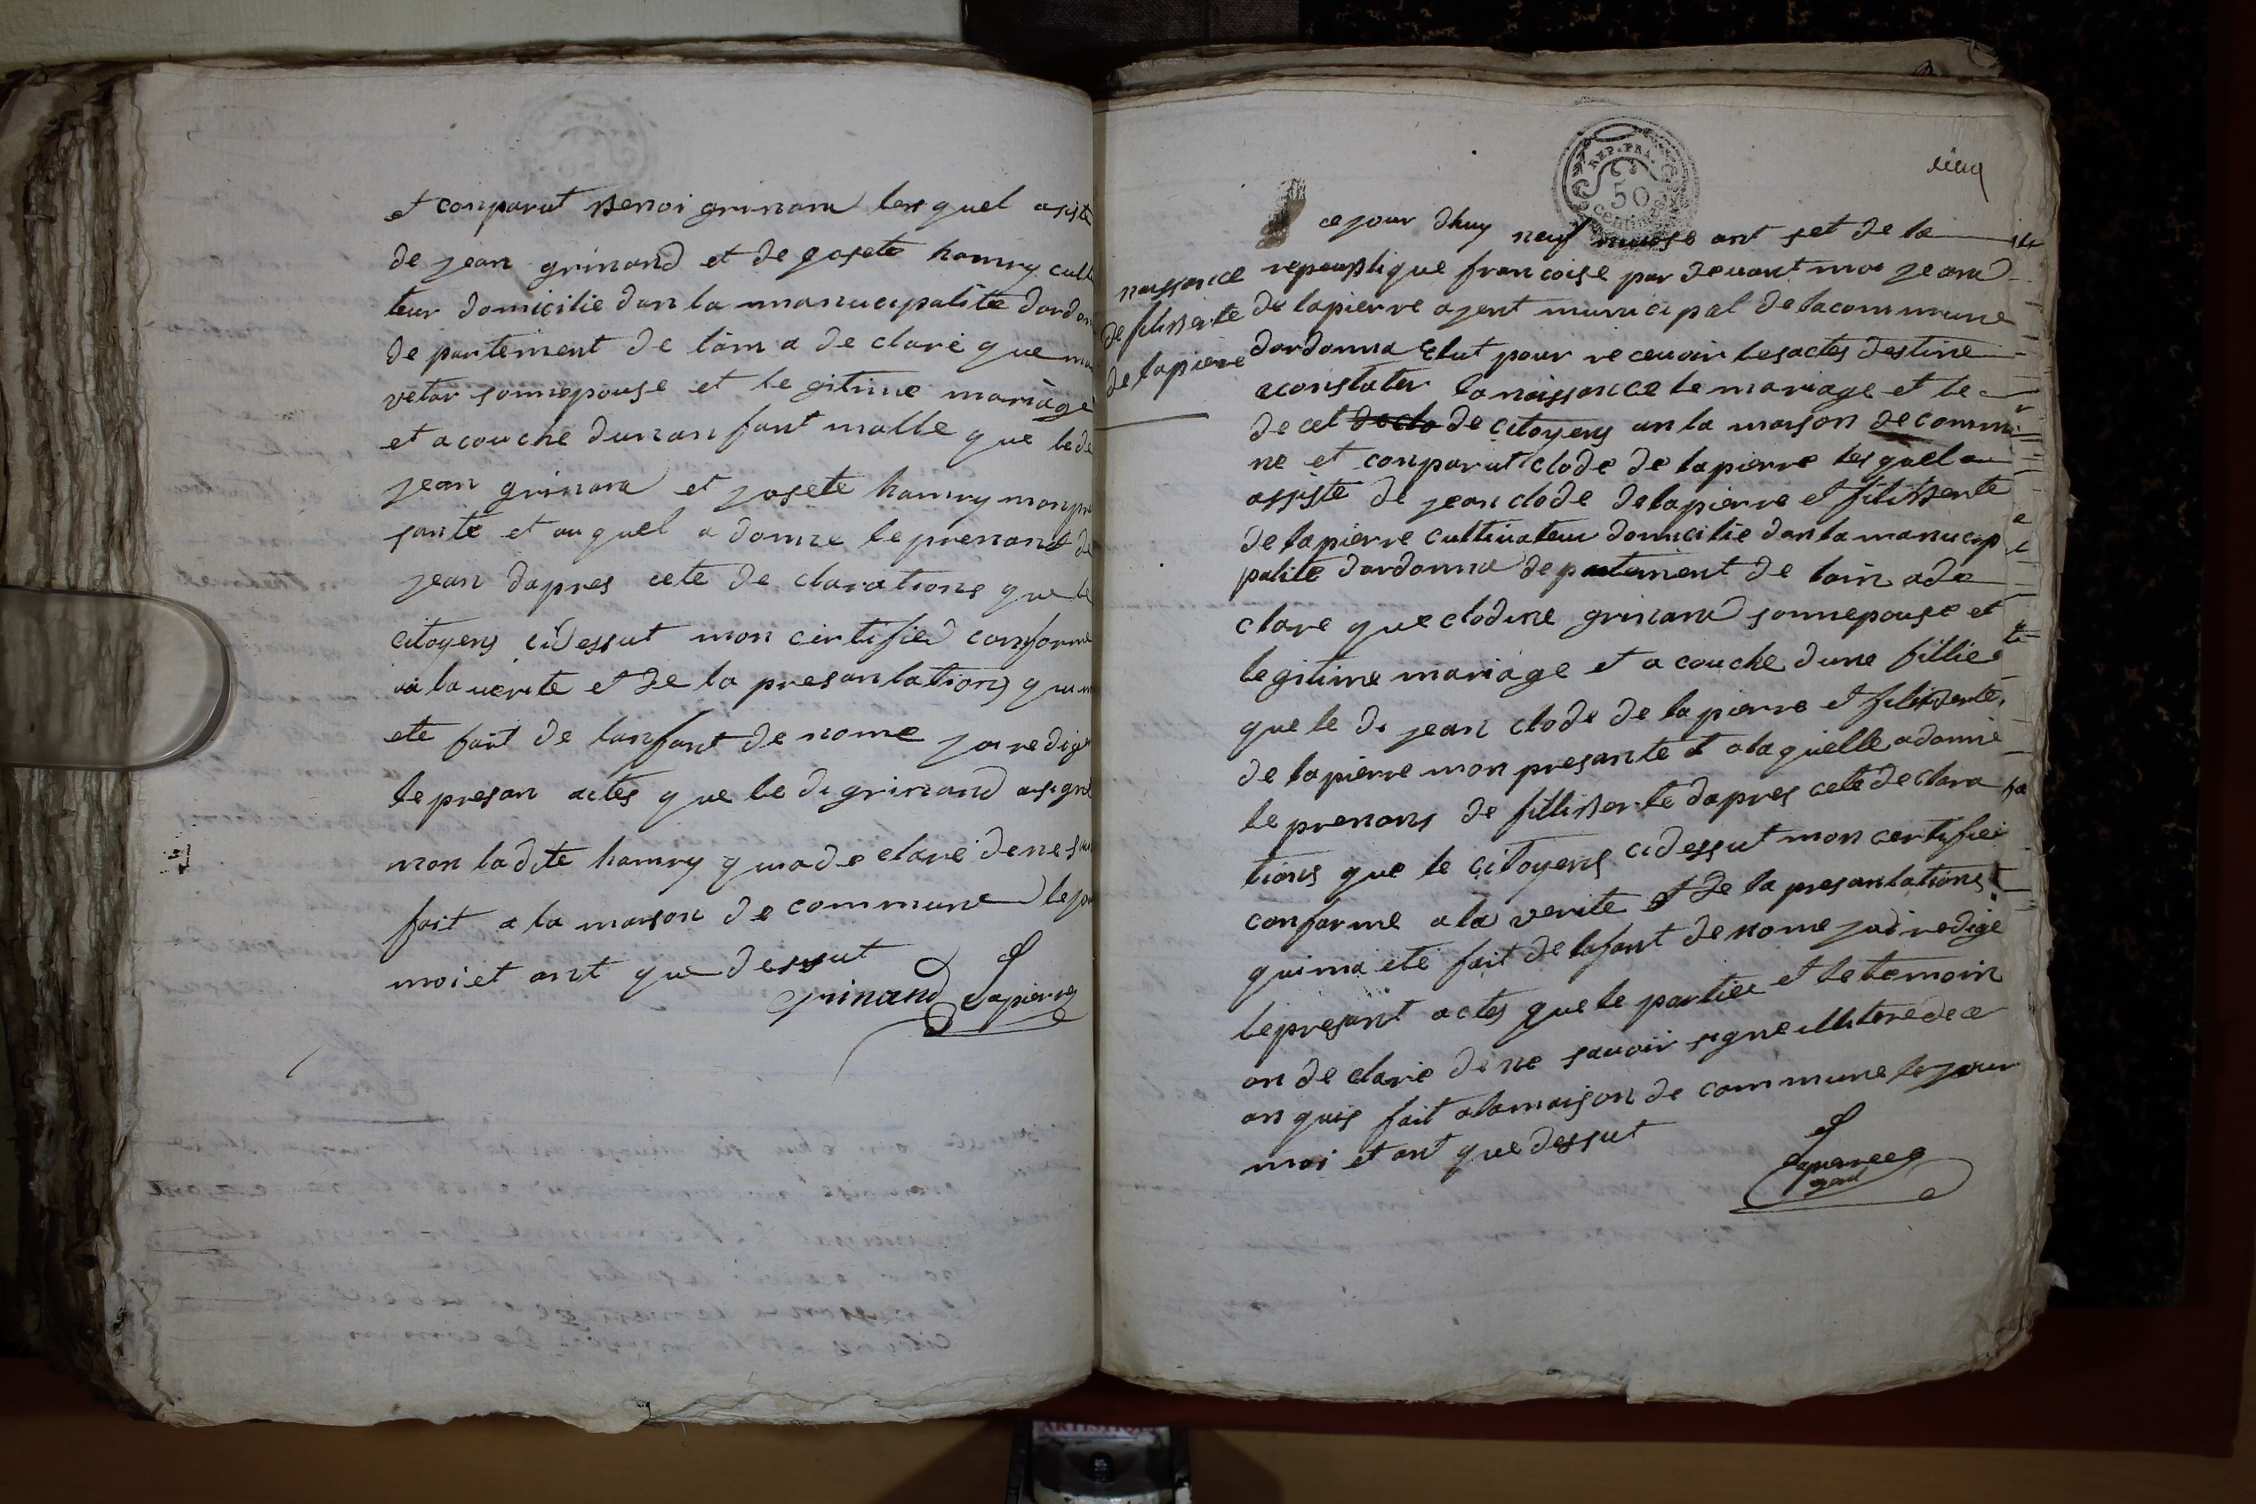 et conparut Benoi grinand lesquel asiste
de jean grinand et de josete hamry culti
teur domicilie dan la manucipalite dordon
de partement de lain a de clare que
vetar sonnepouse et legitime mariage
et a couche dunan fant malle que le de
jean grinand et josete hamry mon pre
sante et au quel a donne le prenand de
jean dapres cete de clarations que le
citoyens cidessut mon certifie conforme
a la verite et de la presantations qui
ete fait de lanfant de nome jai redige
le presan actes que le di grinand a signe
mon ladite hamry qui a de clare de ne sa
fait a la maison de commune le jo
moi et ant que dessut
grinand Lapierre
REP. FRA.
50
centimes
cinq
ce jour dhuy neuf nivose ant set de la
repeuplique francoise par devant moi jean
de lapierre agent municipal de lacommune
dordonna Elut pour recevoir lesactes destine
aconstater la naissance le mariage et le
de cet de citoyens an la maison de commu
ne et conparut clode de lapierre lesquel
assiste de jean clode delapierre et filiberte
de lapierre cultivateur domicilie dan la manucip
palite dordonna de partement de lain a de
clare que clodine grinand sonnepouse et
legitime mariage et a couche dune fillie
que le di jean clode de lapierre et filiberte
de lapierre mon presante et a laquelle a donne
le prenons de filliberte dapres cete de clara
tions que le citoyens cidessut mon certifiei
conforme a la verite et de la presantations
quima ete fait de lafant de nome jai redige
lepresant actes que le parties et le temoin
on de clare de ne savoir signe illitere de ce
anquis fait a lamaison de commune le jour
moi et ant que dessut
Lapierre
agent
naissance
de filiberte
de lapierre